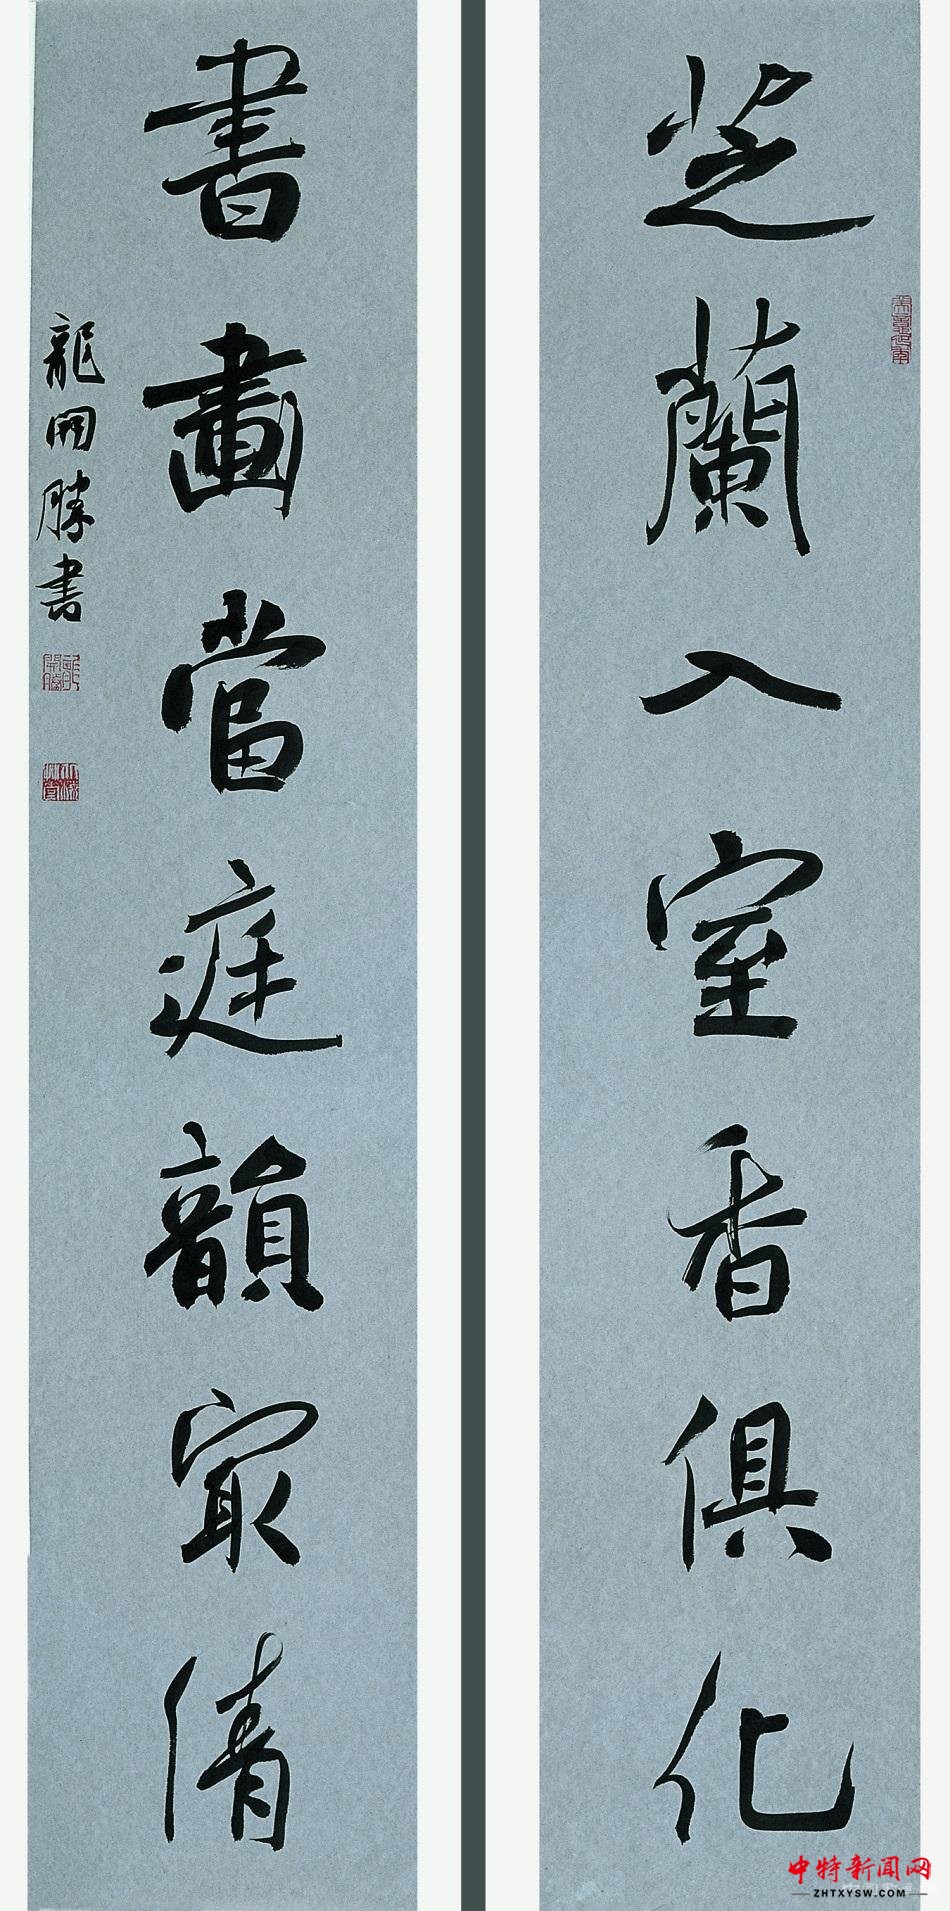 芝蘭入室香俱化
書畫當庭韻冣清
龍開勝書
中特新闻网
ZHTXYSW.COM